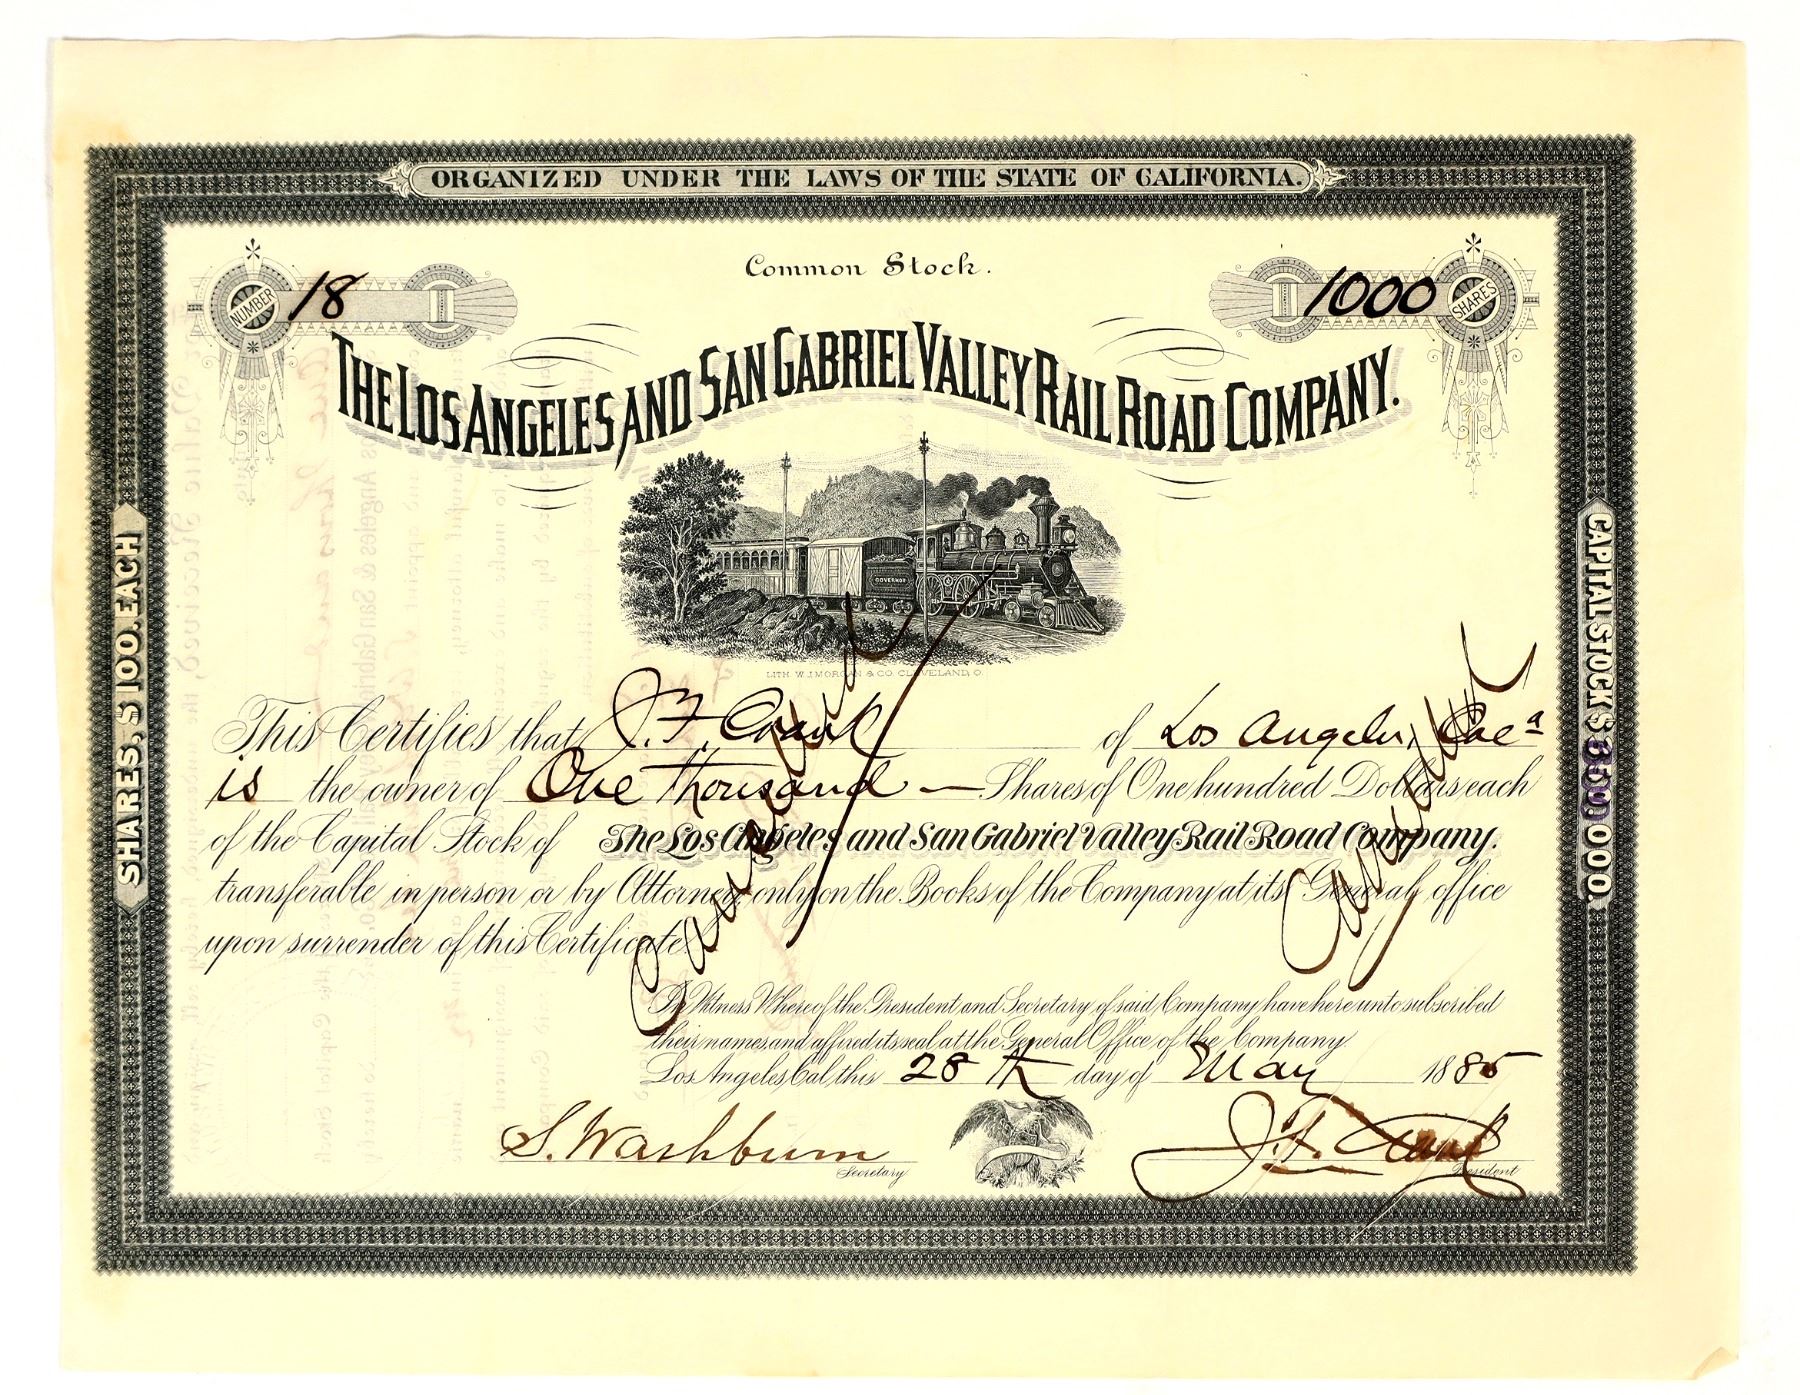 ORGANIZED UNDER THE LAWS OF THE STATE OF CALIFORNIA.
Common Stock.
NUMBER 18
1000 SHARES
THE LOS ANGELES AND SAN GABRIEL VALLEY RAIL ROAD COMPANY.
GOVERNOR
LITH. W.J. MORGAN & CO. CLEVELAND, O.
SHARES, $100. EACH
CAPITAL STOCK $ 000.
This Certifies that J. F. Crank of Los Angeles, Cal
is the owner of One Thousand — Shares of One hundred Dollars each
of the Capital Stock of The Los Angeles and San Gabriel Valley Rail Road Company.
transferable in person or by Attorney only on the Books of the Company at its General office
upon surrender of this Certificate.
Canceled
Canceled
In Witness Whereof the President and Secretary of said Company have hereunto subscribed
their names and affixed its seal at the General Office of the Company
Los Angeles, Cal. this 28 th day of May 1885
S. Washburn Secretary
J. F. Crank President